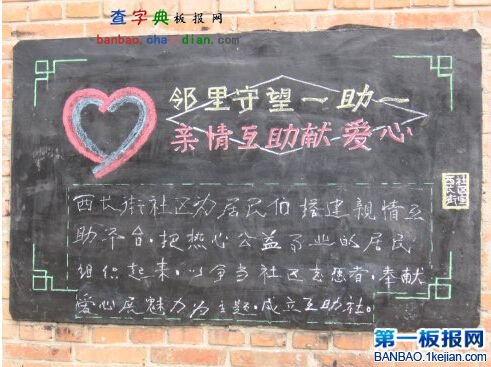 查字典板报网
banbao.chazidian.com
邻里守望一助一
亲情互助献爱心
西长街社区为居民伯搭建親情互
助平台.把热心公益事业的居民
组织起来.以争当社区志愿者,奉献
爱心展魅力为主题.成立互助社。
西长街
社区宣
第一板报网
BANBAO.1kejian.com